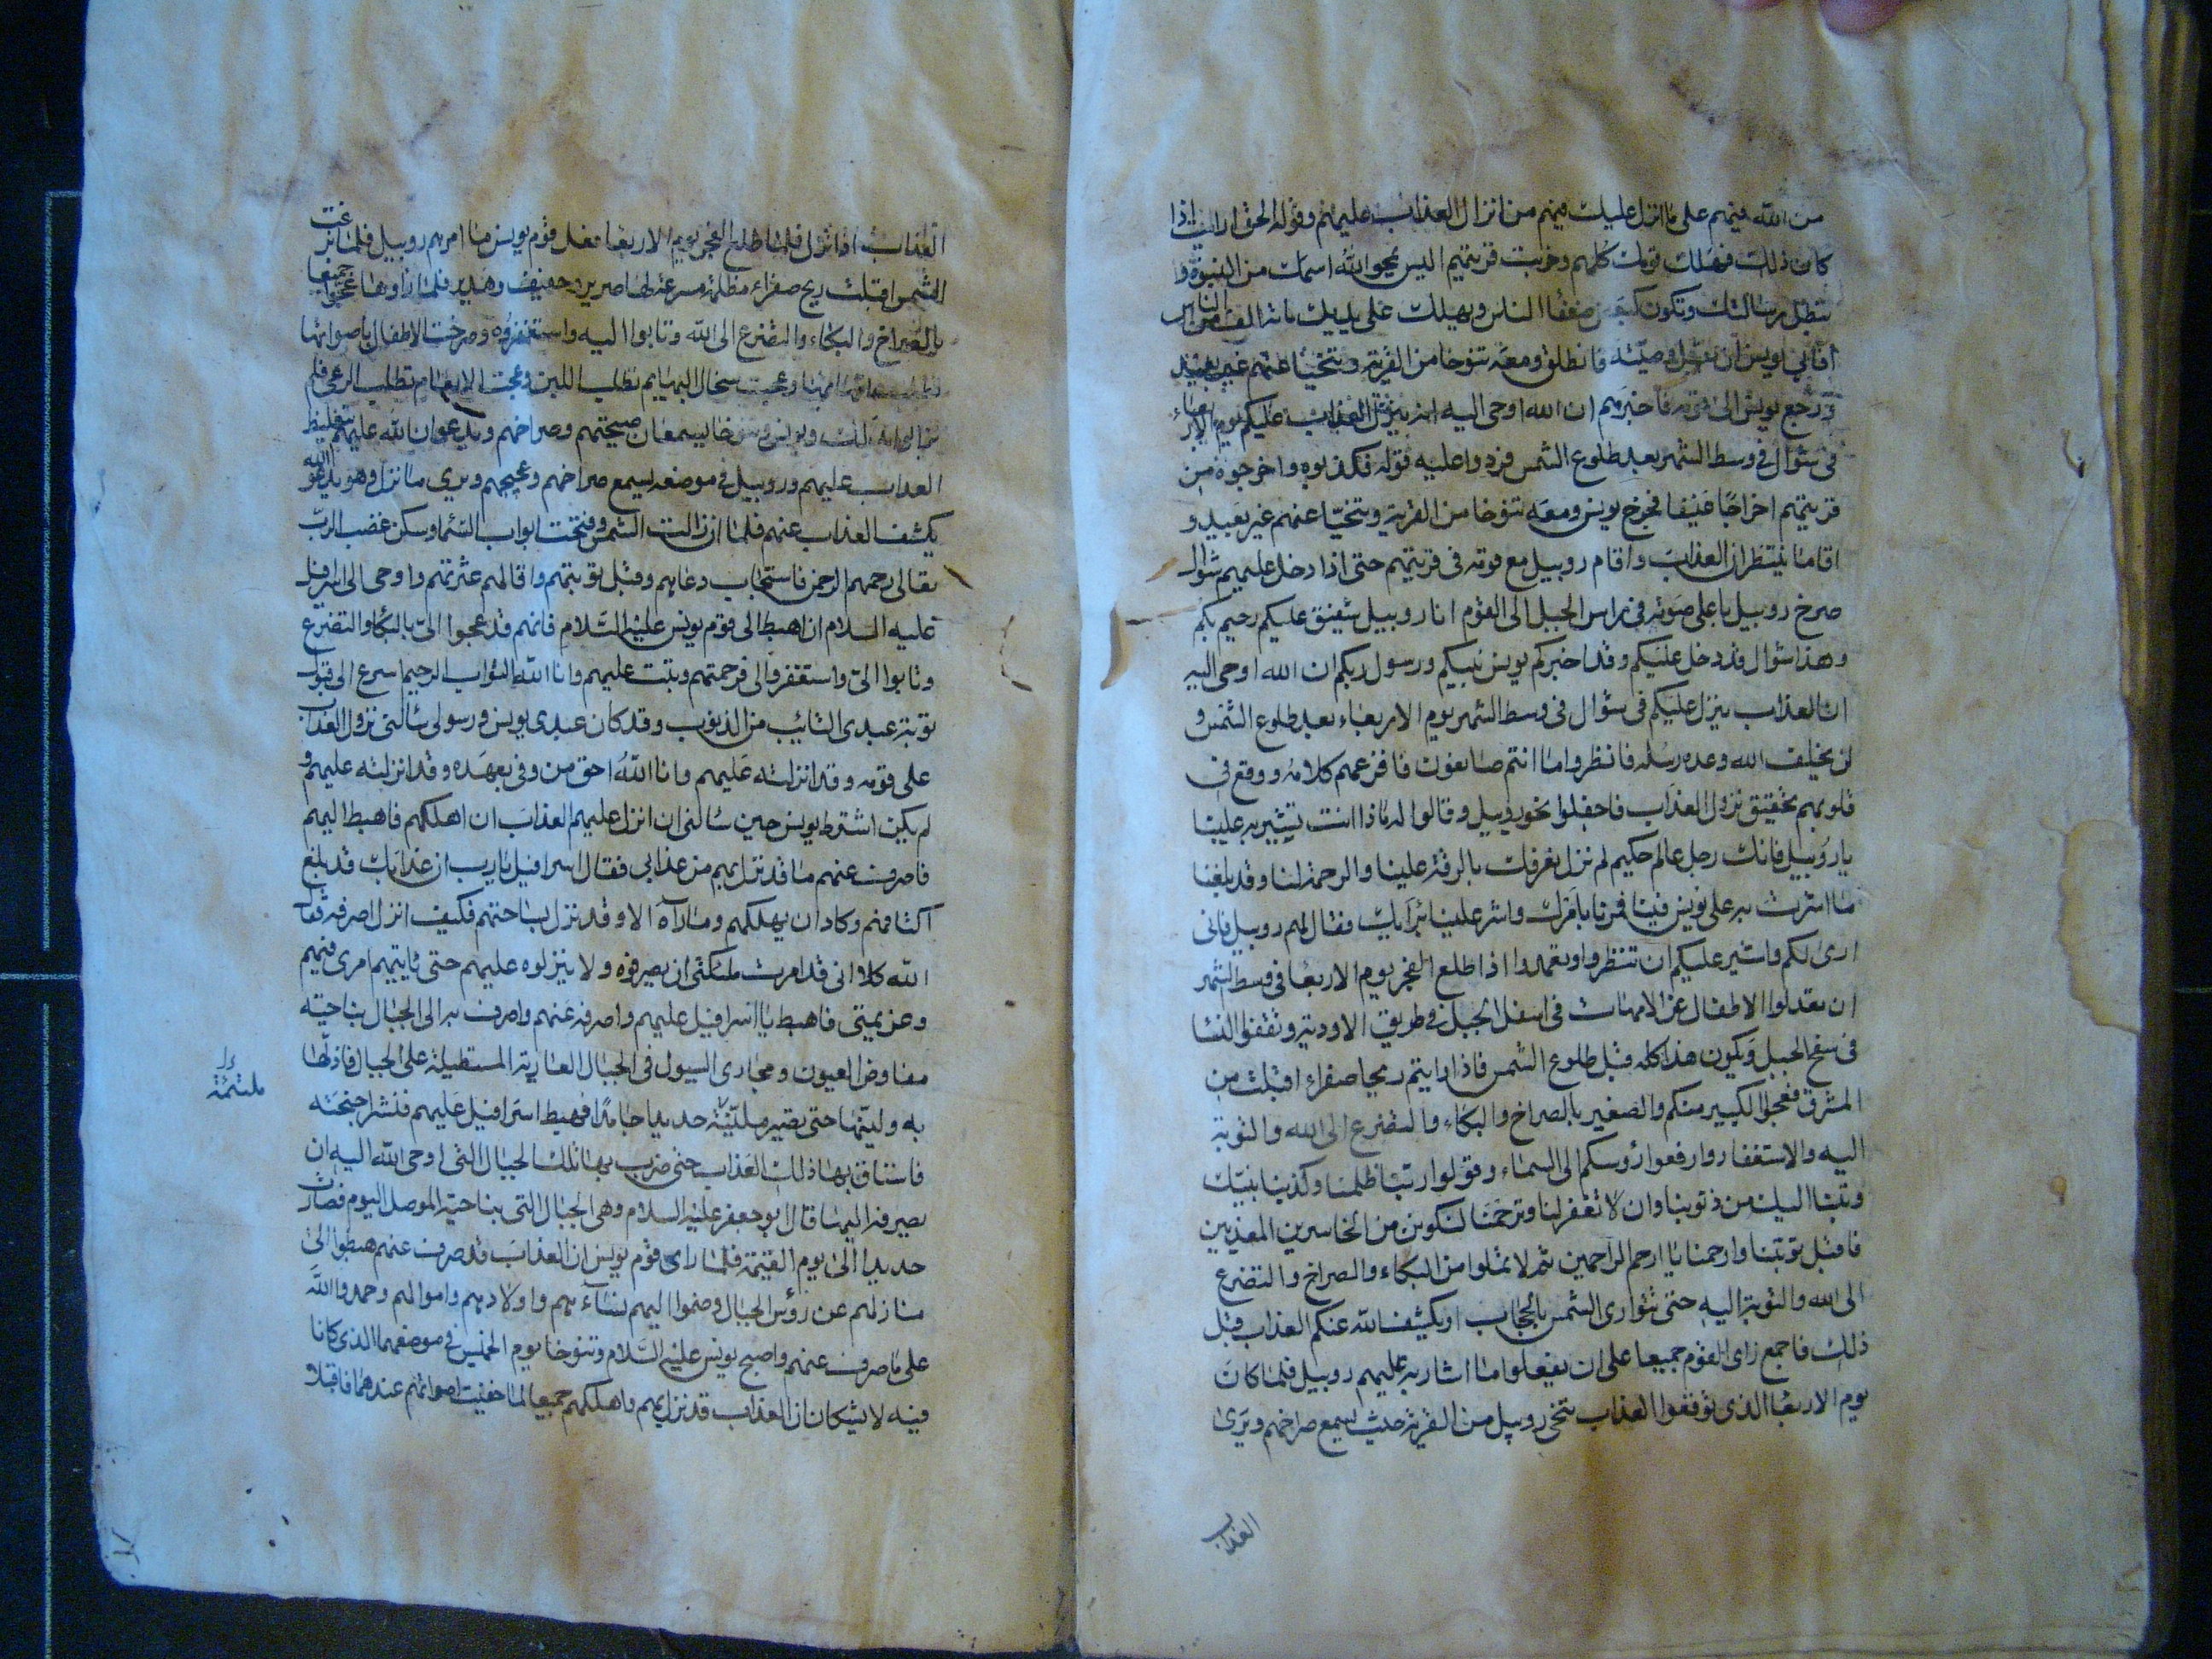 من الله فيهم على ما انزل عليك فيهم من انزال العذاب عليهم وقوله الحق ارايت اذا
كان ذلك فهلك قومك كلهم وخربت قريتهم اليس يمحو الله اسمك من النبوة و
تبطل رسالتك وتكون كبعض ضعفاء الناس ويهلك على يديك مائة الف من الناس
فابى يونس ان يقبل وصيته فانطلق ومعه تنوخا من القرية وتنحيا عنهم غير بعيد
ورجع يونس الى قومه فاخبرهم ان الله اوحى اليه انه ينزل العذاب عليكم يوم الاربعاء
فى شوال فى وسط الشهر بعد طلوع الشمس فردوا عليه قوله فكذبوه واخرجوه من
قريتهم اخراجا عنيفا فخرج يونس ومعه تنوخا من القرية وتنحيا عنهم غير بعيد و
اقاما ينتظران العذاب واقام روبيل مع قومه فى قريتهم حتى اذا دخل عليهم شوال
صرخ روبيل باعلى صوته فى راس الجبل الى القوم انا روبيل شفيق عليكم رحيم بكم
وهذا شوال قد دخل عليكم وقد اخبركم يونس نبيكم ورسول ربكم ان الله اوحى اليه
ان العذاب ينزل عليكم فى شوال فى وسط الشهر يوم الاربعاء بعد طلوع الشمس و
لن يخلف الله وعده رسله فانظروا ما انتم صانعون فافزعهم كلامه ووقع فى
قلوبهم تحقيق نزول العذاب فاجفلوا نحو روبيل وقالوا له ماذا انت تشير به علينا
يا روبيل فانك رجل عالم حكيم لم نزل نعرفك بالرقة علينا والرحمة لنا وقد بلغنا
ما اشرت به على يونس فينا فمرنا بامرك واشر علينا برايك فقال لهم روبيل فانى
ارى لكم واشير عليكم ان تنظروا وتعمدوا اذا طلع الفجر يوم الاربعا فى وسط الشهر
ان تعدلوا الاطفال عن الامهات فى اسفل الجبل فى طريق الاودية وتقفوا النسا
فى سفح الجبل ويكون هذا كله قبل طلوع الشمس فاذا رايتم ريحا صفراء اقبلت من
المشرق فعجوا الكبير منكم والصغير بالصراخ والبكاء والتضرع الى الله والتوبة
اليه والاستغفار وارفعوا رؤسكم الى السماء وقولوا ربنا ظلمنا وكذبنا نبيك
وتبنا اليك من ذنوبنا وان لا تغفر لنا وترحمنا لنكونن من الخاسرين المعذبين
فاقبل توبتنا وارحمنا يا ارحم الراحمين ثم لا تملوا من البكاء والصراخ والتضرع
الى الله والتوبة اليه حتى تتوارى الشمس بالحجاب او يكشف الله عنكم العذاب قبل
ذلك فاجمع راى القوم جميعا على ان يفعلوا ما اشار به عليهم روبيل فلما كان
يوم الاربعا الذى توقعوا العذاب تنحى روبيل من القرية حيث يسمع صراخهم ويرى
العذاب
العذاب اذا نزل فلما طلع الفجر يوم الاربعا فعل قوم يونس ما امرهم روبيل فلما بزغت
الشمس اقبلت ريح صفراء مظلمة مسرعة لها صرير وحفيف وهدير فلما راوها عجوا جميعا
بالصراخ والبكاء والتضرع الى الله وتابوا اليه واستغفروه وصرخت الاطفال باصواتها
تطلب امهاتها وعجت سخال البهايم تطلب اللبن وعجت الانعام تطلب الرعى فلم
يزالوا بذلك ويونس وتنوخا يسمعان صيحتهم وصراخهم ويدعوان الله عليهم بتغليظ
العذاب عليهم وروبيل فى موضعه يسمع صراخهم وعجيجهم ويرى ما نزل وهو يدعو الله
بكشف العذاب عنهم فلما ان زالت الشمس وفتحت ابواب السماء وسكن غضب الرب
تعالى رحمهم الرحمن فاستجاب دعاهم وقبل توبتهم واقالهم عثرتهم واوحى الى اسرافيل
عليه السلام ان اهبط الى قوم يونس عليه السلام فانهم قد عجوا الى بالبكاء والتضرع
وتابوا الى واستغفرونى فرحمتهم وتبت عليهم وانا الله التواب الرحيم اسرع الى قبول
توبة عبدى التائب من الذنوب وقد كان عبدى يونس ورسولى سالنى نزول العذاب
على قومه وقد انزلته عليهم وانا الله احق من وفى بعهده وقد انزلته عليهم و
لم يكن اشترط يونس حين سالنى ان انزل عليهم العذاب ان اهلكهم فاهبط اليهم
فاصرف عنهم ما قد نزل بهم من عذابى فقال اسرافيل يا رب ان عذابك قد بلغ
اكتافهم وكاد ان يهلكهم وما اراه الا وقد نزل بساحتهم فكيف انزل اصرفه فقال
الله كلا انى قد امرت ملئكتى ان يصرفوه ولا ينزلوه عليهم حتى ياتيهم امرى فيهم
وعزيمتى فاهبط يا اسرافيل عليهم واصرفه عنهم واصرف به الى الجبال بناحية
مفاوض العيون ومجارى السيول فى الجبال العادية المستطيلة على الجبال فاذلها
به ولينها حتى تصير ملينة حديدا جامدا فهبط اسرافيل عليهم فنشر اجنحته
فاستاق بها ذلك العذاب حتى ضرب بها تلك الجبال التى اوحى الله اليه ان
يصرفه اليها قال ابو جعفر عليه السلام وهى الجبال التى بناحية الموصل اليوم فصارت
حديدا الى يوم القيمة فلما راى قوم يونس ان العذاب قد صرف عنهم هبطوا الى
منازلهم عن رؤس الجبال وضموا اليهم نساءهم واولادهم واموالهم وحمدوا الله
على ما صرف عنهم واصبح يونس عليه السلام وتنوخا يوم الخميس فى موضعهما الذى كانا
فيه لا يشكان ان العذاب قد نزل بهم واهلكهم جميعا لما خفيت اصواتهم عندهما فاقبلا